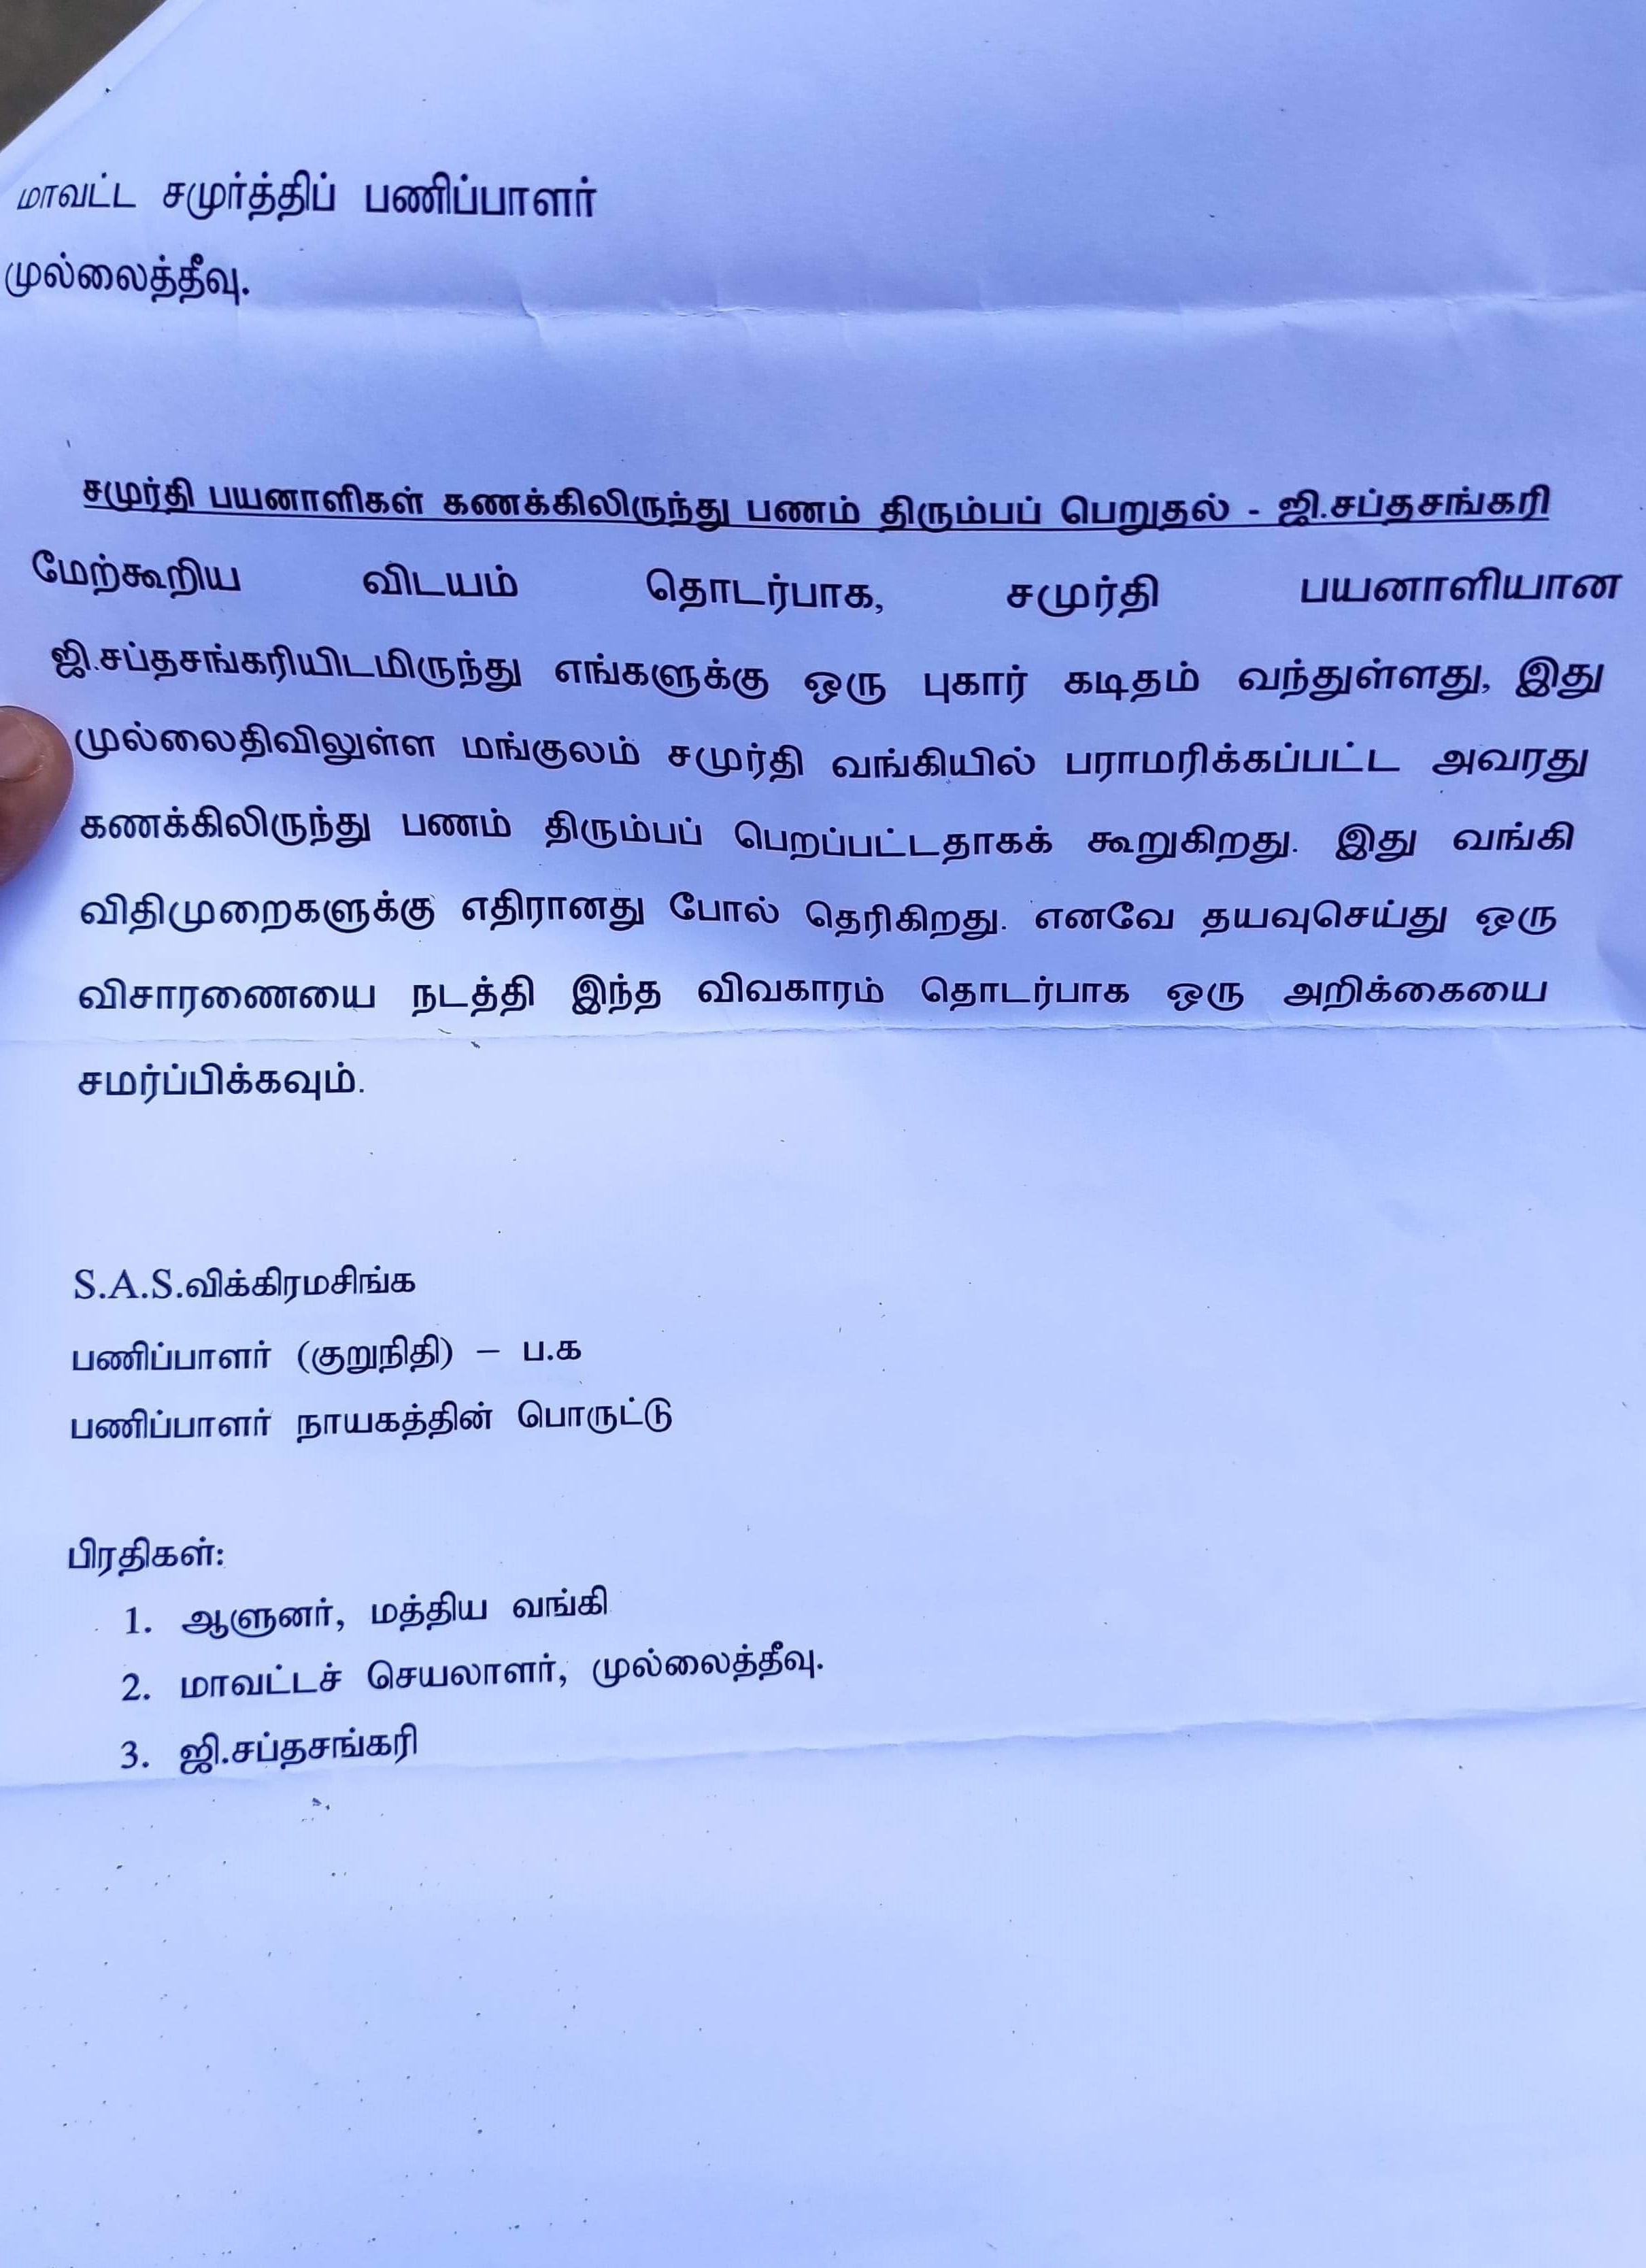 மாவட்ட சமுர்த்திப் பணிப்பாளர்
முல்லைத்தீவு.
சமுர்தி பயனாளிகள் கணக்கிலிருந்து பணம் திரும்பப் பெறுதல் - ஜி.சப்தசங்கரி
மேற்கூறிய விடயம் தொடர்பாக, சமுர்தி பயனாளியான
ஜி.சப்தசங்கரியிடமிருந்து எங்களுக்கு ஒரு புகார் கடிதம் வந்துள்ளது, இது
முல்லைதிவிலுள்ள மங்குலம் சமுர்தி வங்கியில் பராமரிக்கப்பட்ட அவரது
கணக்கிலிருந்து பணம் திரும்பப் பெறப்பட்டதாகக் கூறுகிறது. இது வங்கி
விதிமுறைகளுக்கு எதிரானது போல் தெரிகிறது. எனவே தயவுசெய்து ஒரு
விசாரணையை நடத்தி இந்த விவகாரம் தொடர்பாக ஒரு அறிக்கையை
சமர்ப்பிக்கவும்.
S.A.S.விக்கிரமசிங்க
பணிப்பாளர் (குறுநிதி) – ப.க
பணிப்பாளர் நாயகத்தின் பொருட்டு
பிரதிகள்:
1. ஆளுனர், மத்திய வங்கி
2. மாவட்டச் செயலாளர், முல்லைத்தீவு.
3. ஜி.சப்தசங்கரி